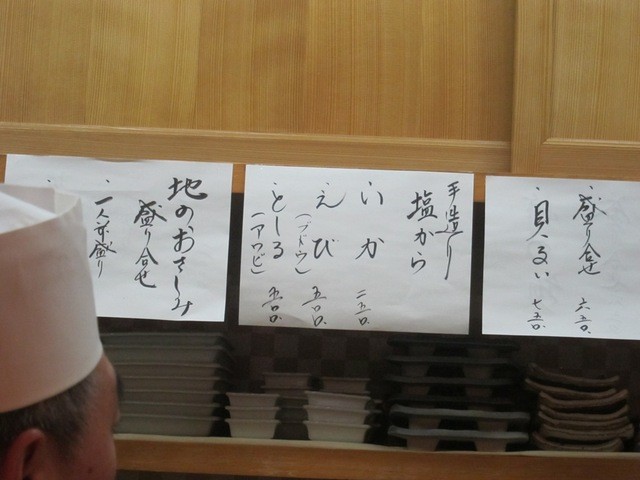 ・盛り合せ 六五〇.
・貝るい 七五〇.
手造り
塩から
・いか 二五〇.
・えび
(ブドウ) 五〇〇.
・としる
(アワビ) 五〇〇.
地のおさしみ
盛り合せ
・一人前盛り